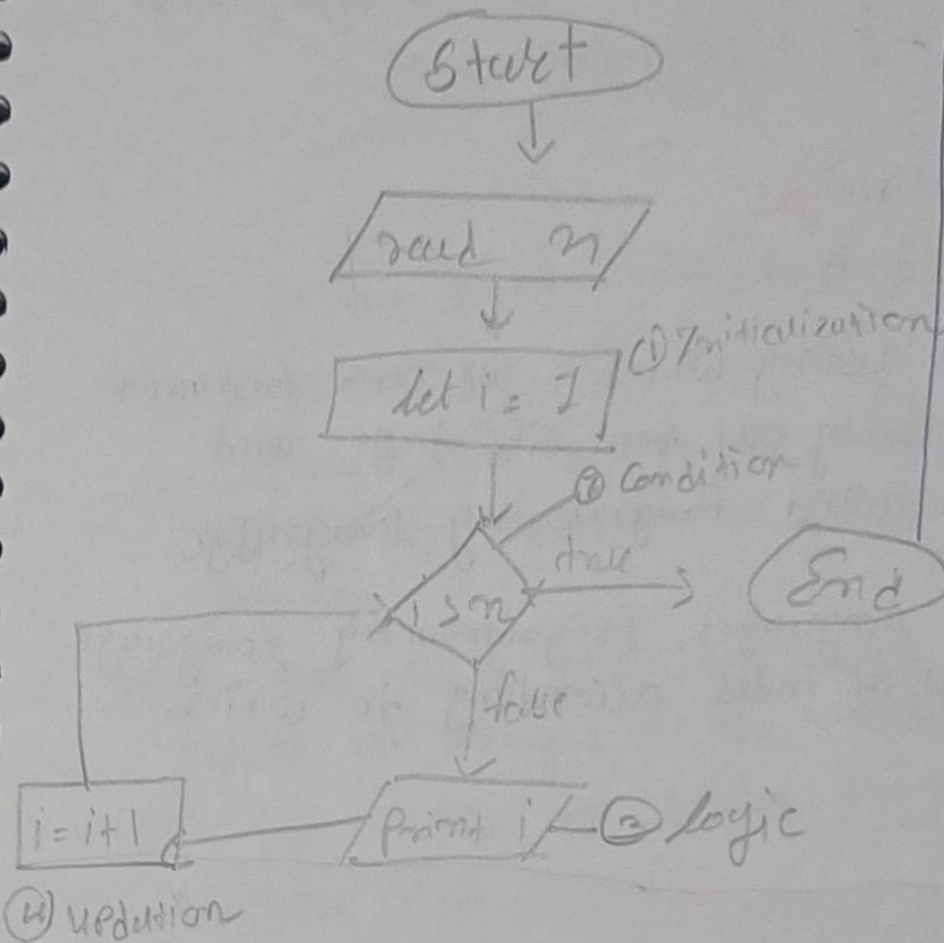 Start
read n
let i = 1
(1) Initialization
(2) Condition
i > n
true
End
false
i = i+1
Print i
(3) logic
(4) updation